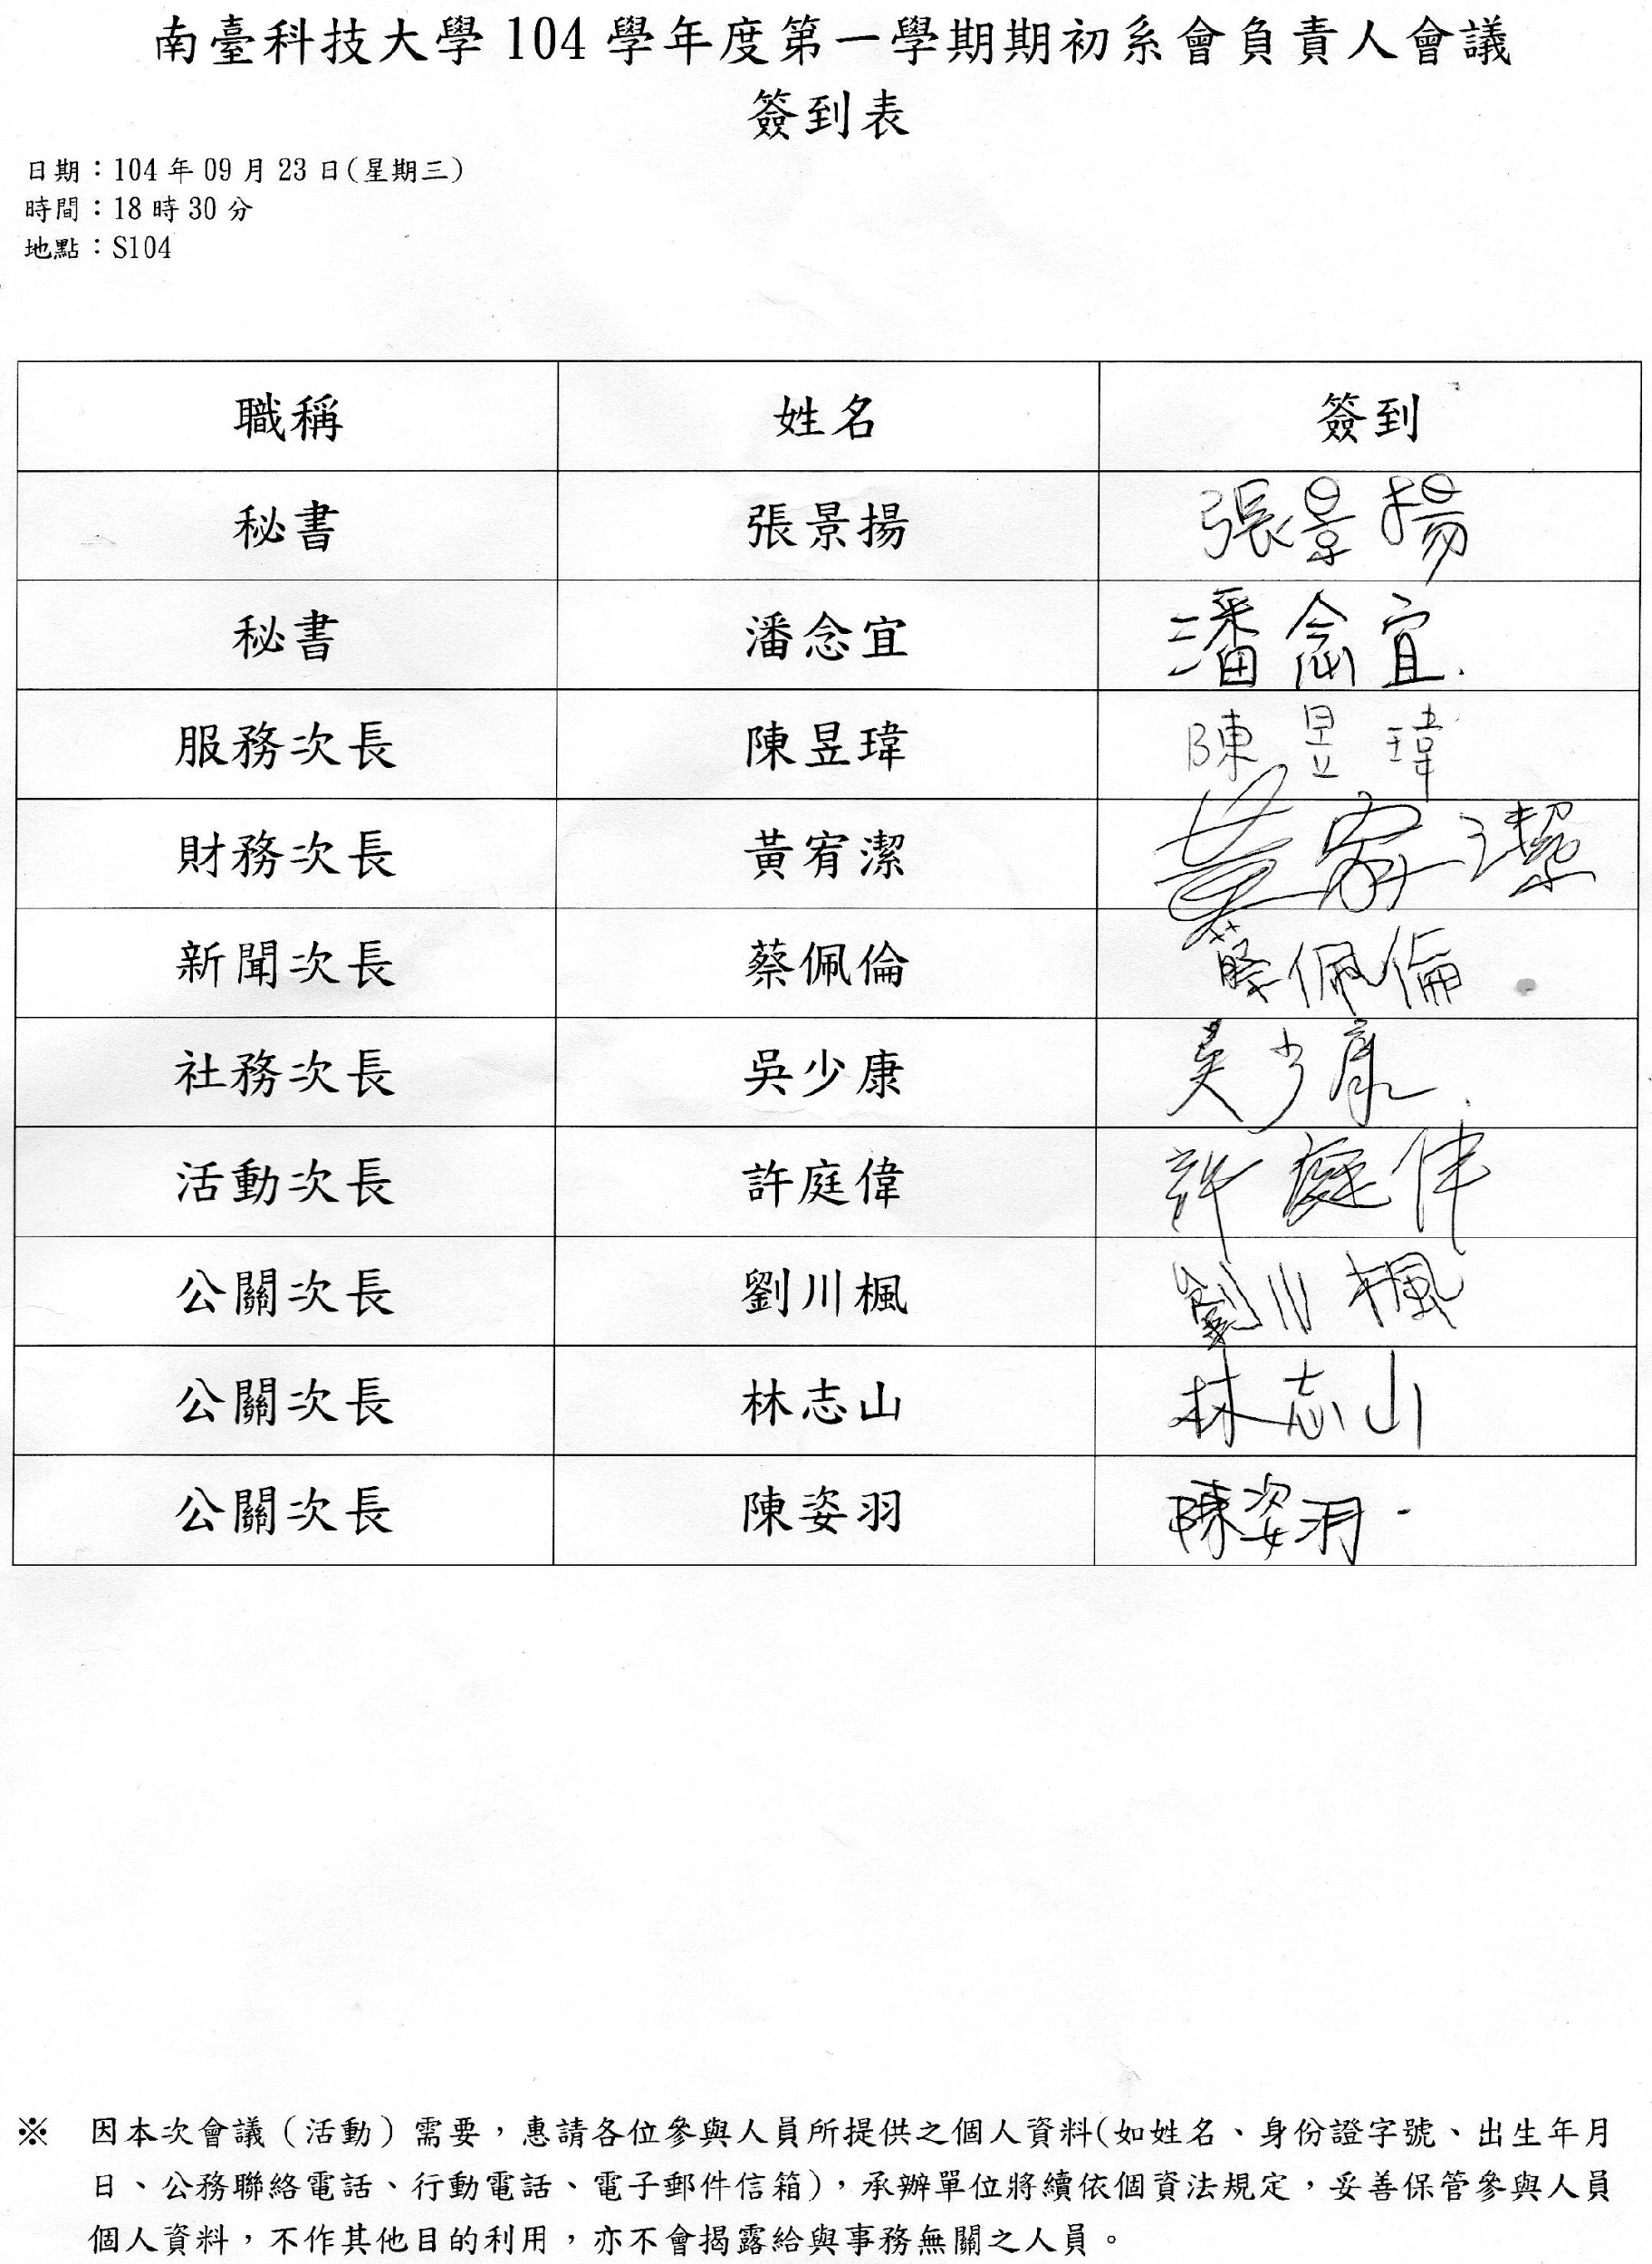 南臺科技大學 104 學年度第一學期期初系會負責人會議
簽到表
日期：104 年 09 月 23 日(星期三)
時間：18 時 30 分
地點：S104
職稱 姓名 簽到
秘書 張景揚 張景揚
秘書 潘念宜 潘念宜.
服務次長 陳昱瑋 陳昱瑋
財務次長 黃宥潔 黃宥潔
新聞次長 蔡佩倫 蔡佩倫
社務次長 吳少康 吳少康.
活動次長 許庭偉 許庭偉
公關次長 劉川楓 劉川楓
公關次長 林志山 林志山
公關次長 陳姿羽 陳姿羽
※ 因本次會議（活動）需要，惠請各位參與人員所提供之個人資料(如姓名、身份證字號、出生年月
日、公務聯絡電話、行動電話、電子郵件信箱)，承辦單位將續依個資法規定，妥善保管參與人員
個人資料，不作其他目的利用，亦不會揭露給與事務無關之人員。